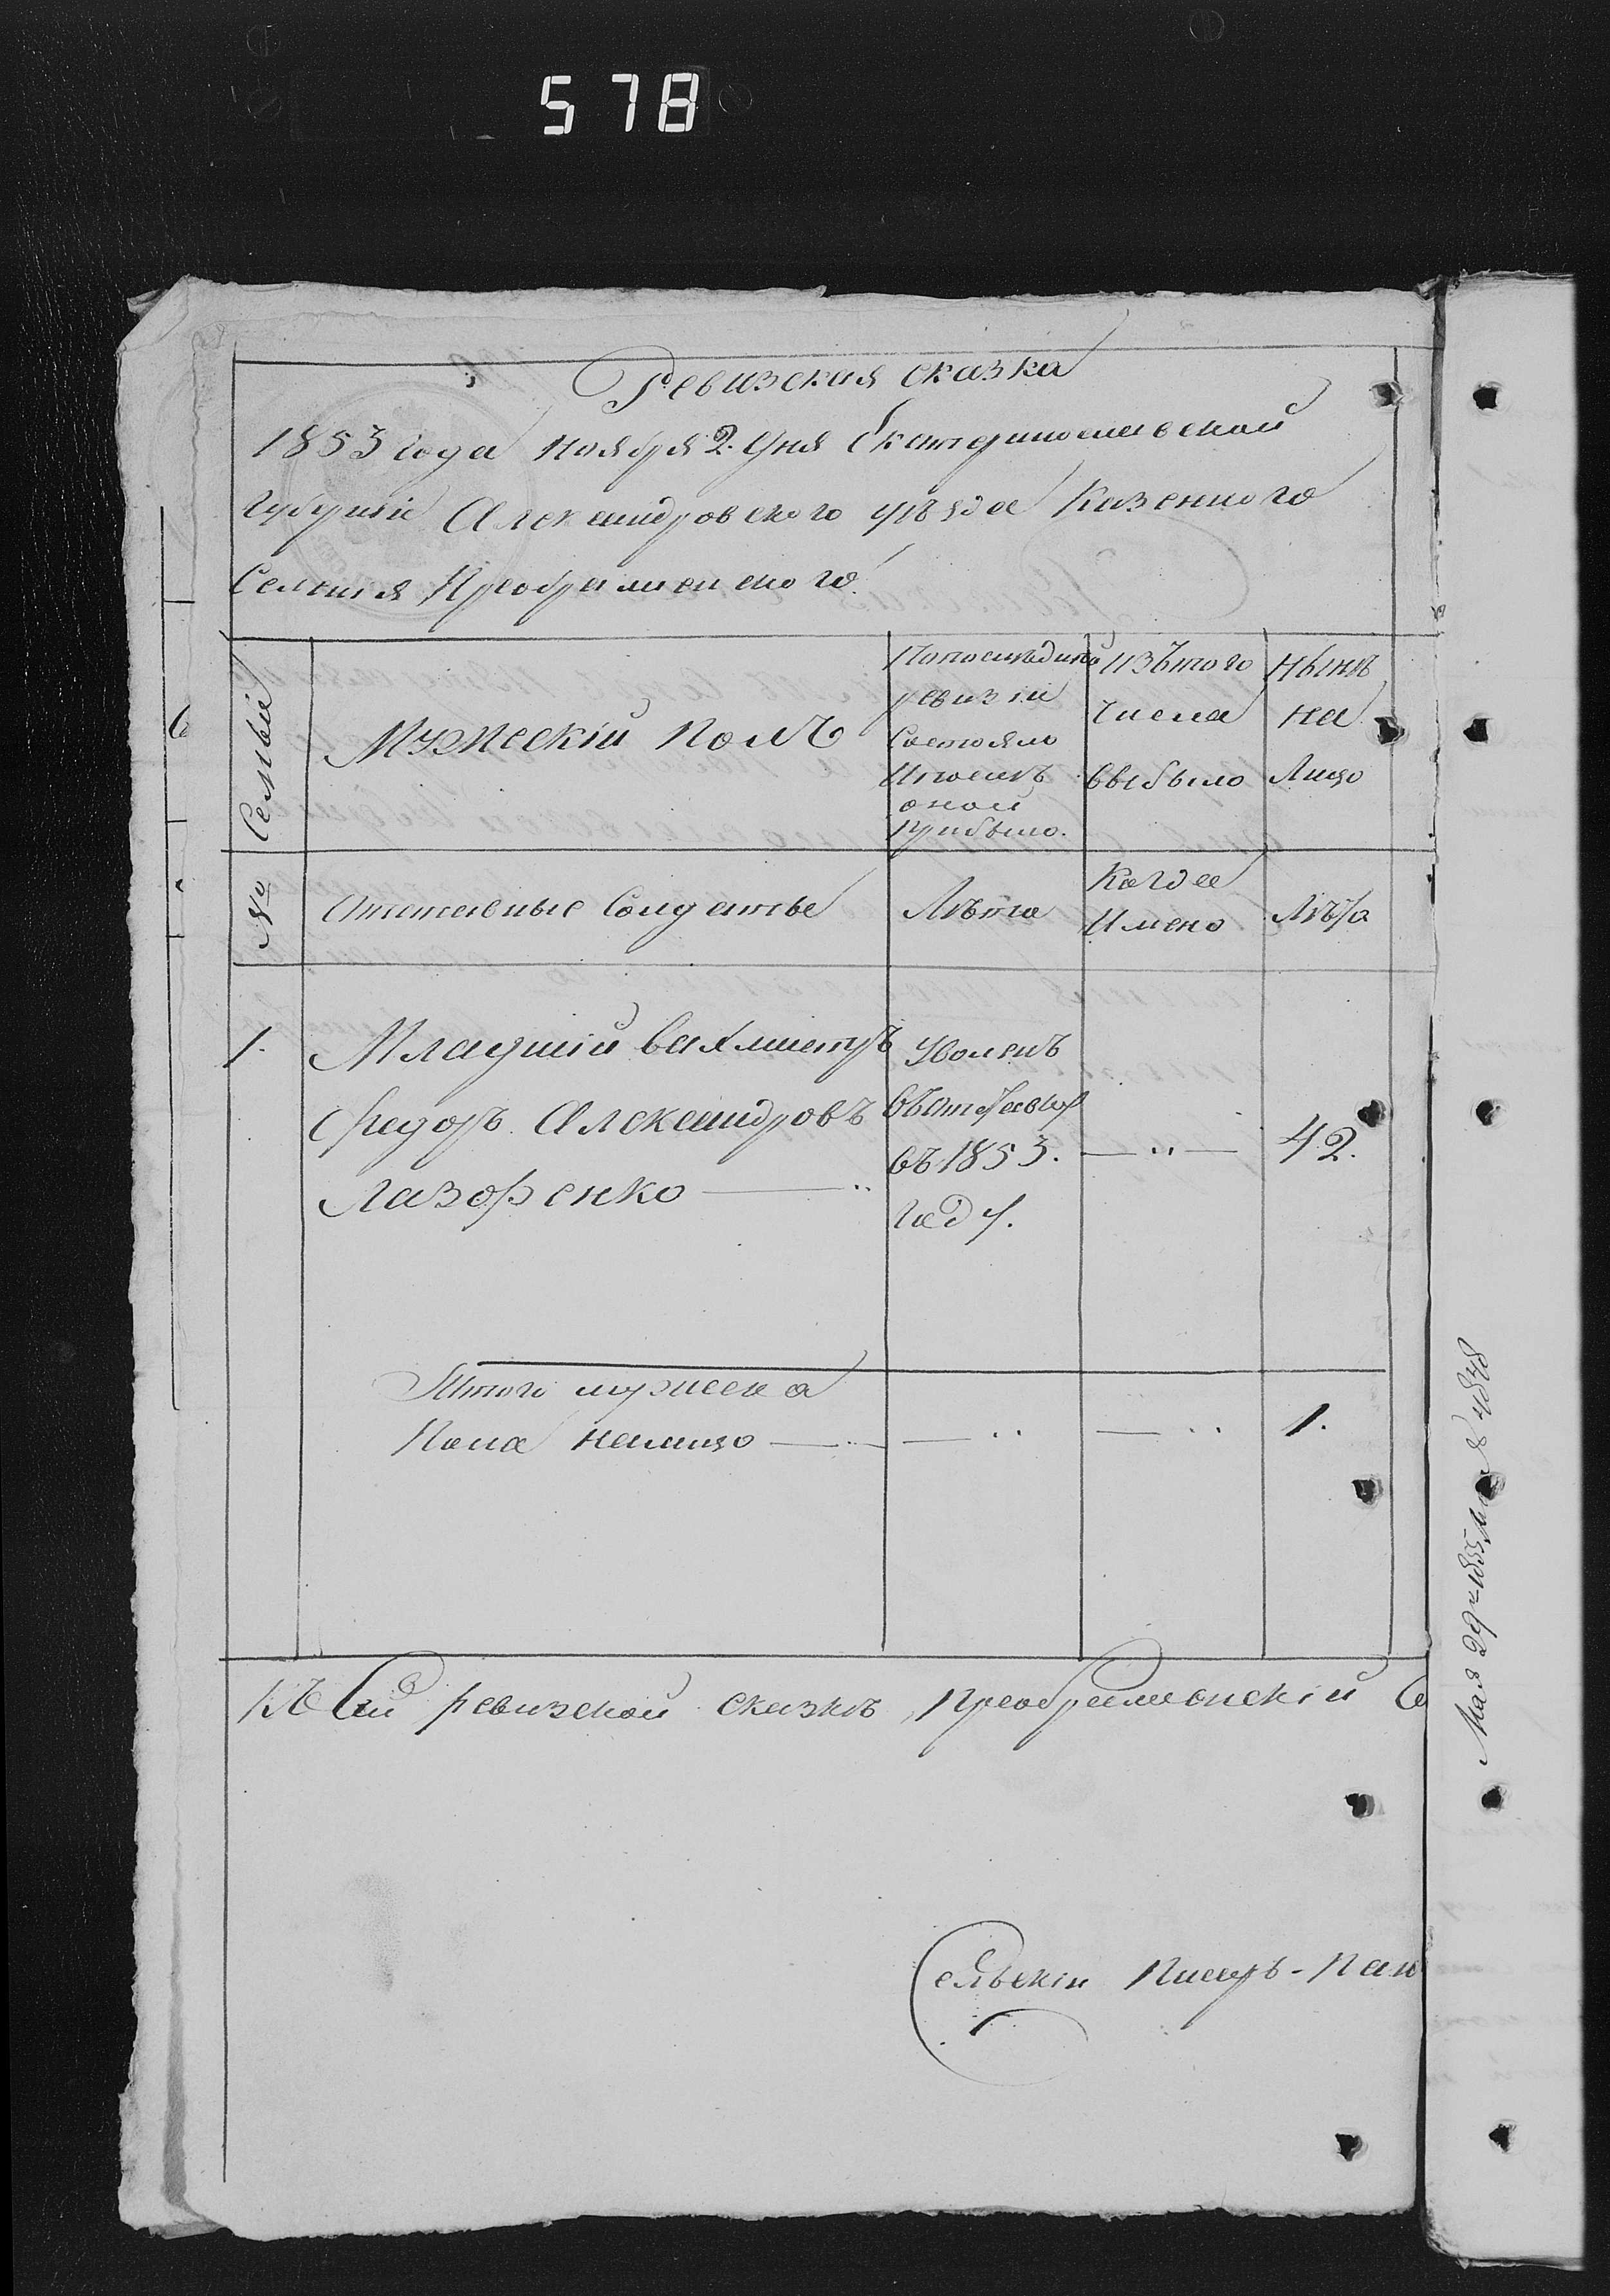 578
Ревизская сказка
1853 года ноября 2. дня Екатеринославской
Губерніи Александровского уѣзда Казенного
Селенія Преображенского.
Семьи
Мужескій полъ
По последней
ревизіи
Состояло
и после
оной
прибыло.
изъ того
числа
выбыло
Нынѣ
на
лицо
№
Отставные Солдаты
Лѣта
Когда
имено
Лѣта
1.
Младшій вахмистръ
Федоръ Александровъ
Лазоренко
Уволенъ
въ
въ 1853.
году.
42.
Итого мужеска
Пола налицо
1.
Къ сей ревизской сказкѣ Преображенскій Се
Сельскій Писарь - Пан
Мая 29 1855 № 4848